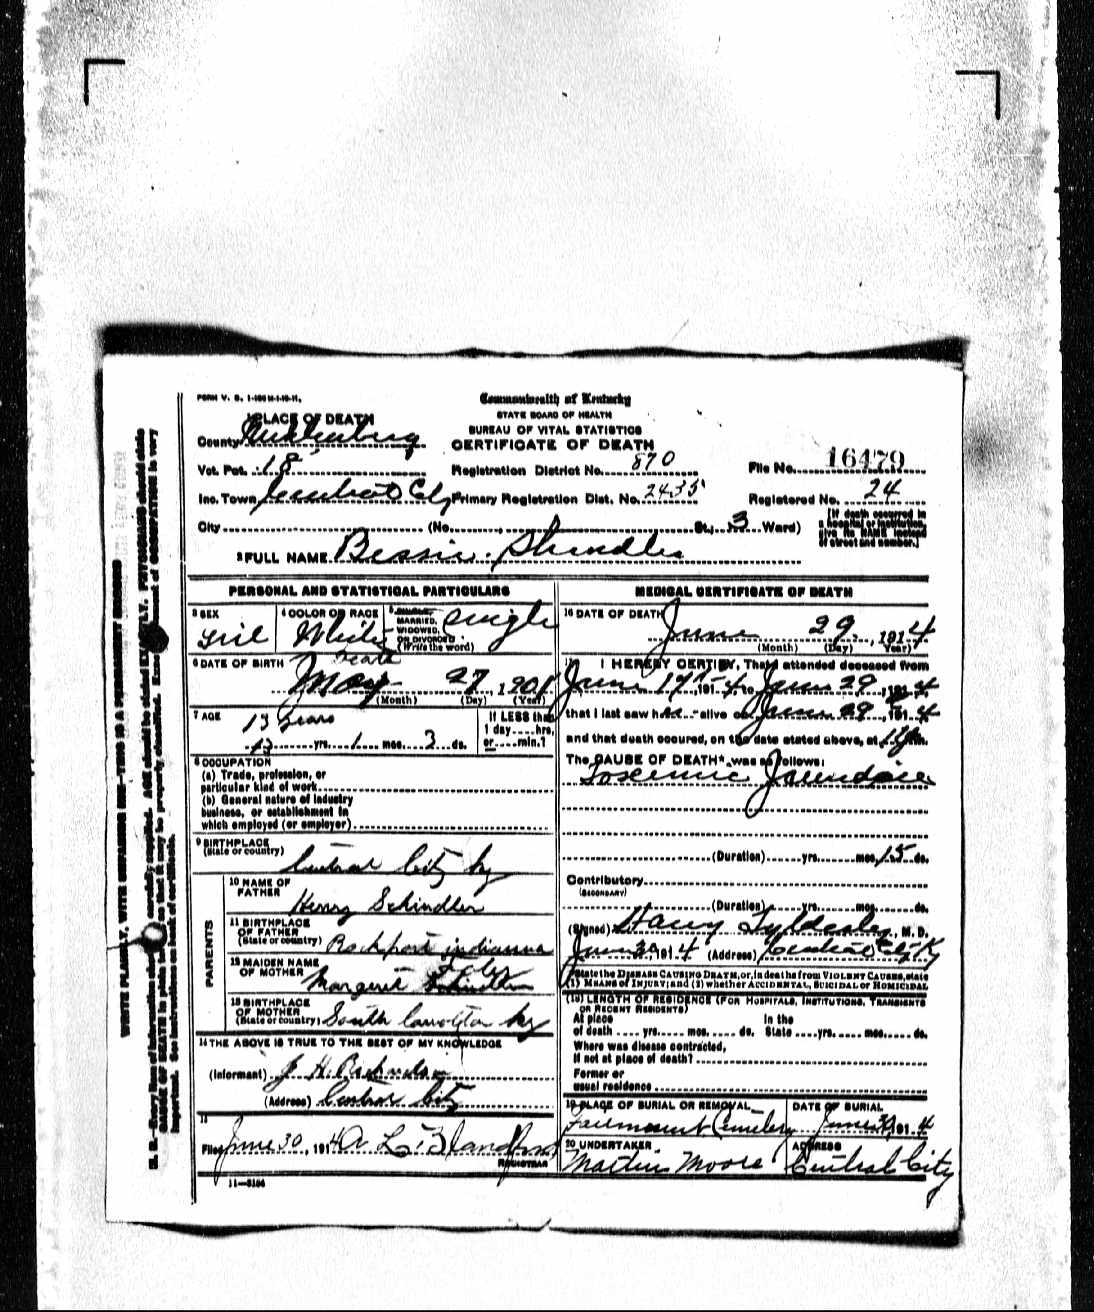 FORM V. S. 1-
Commonwealth of Kentucky
STATE BOARD OF HEALTH
BUREAU OF VITAL STATISTICS
CERTIFICATE OF DEATH
1 PLACE OF DEATH
County Muhlenberg
Vot. Pct. 18
Registration District No. 870
File No. 16479
Inc. Town Central City
Primary Registration Dist. No. 2435
Registered No. 24
City (No. , St., 3 Ward)
[If death occurred in a hospital or institution, give its NAME instead of street and number.]
2 FULL NAME Bessie Shindler
PERSONAL AND STATISTICAL PARTICULARS
3 SEX Girl
4 COLOR OR RACE White
5 MARRIED, WIDOWED, OR DIVORCED (Write the word) single
6 DATE OF BIRTH
May 27, 1901
(Month) (Day) (Year)
7 AGE 13 years
13 yrs. 1 mos. 3 ds.
If LESS than 1 day....hrs, or....min.?
8 OCCUPATION
(a) Trade, profession, or
particular kind of work
(b) General nature of industry
business, or establishment in
which employed (or employer)
9 BIRTHPLACE
(State or country) Central City Ky
PARENTS
10 NAME OF FATHER Henry Schindler
11 BIRTHPLACE OF FATHER
(State or country) Rockport indianna
12 MAIDEN NAME OF MOTHER Margaret
13 BIRTHPLACE OF MOTHER
(State or country) South Carrolton Ky
14 THE ABOVE IS TRUE TO THE BEST OF MY KNOWLEDGE
(Informant) J. H.
(Address) Central City
15
Filed June 30, 1914 A L Bland
REGISTRAR
11—3184
MEDICAL CERTIFICATE OF DEATH
16 DATE OF DEATH
June 29, 1914
(Month) (Day) (Year)
17 I HEREBY CERTIFY, That I attended deceased from
June 17, 1914 to June 29, 1914
that I last saw h alive on June 29, 1914
and that death occured, on the date stated above, at 11 m.
The CAUSE OF DEATH* was as follows:
Toxemic Jaundice
(Duration) yrs. mos. 15 ds.
Contributory
(SECONDARY)
(Duration) yrs. mos. ds.
(Signed) Harry Tyldesley, M. D.
June 30, 1914 (Address) Central City Ky
*State the DISEASE CAUSING DEATH, or, in deaths from VIOLENT CAUSES, state
(1) MEANS OF INJURY; and (2) whether ACCIDENTAL, SUICIDAL or HOMICIDAL
(18) LENGTH OF RESIDENCE (FOR HOSPITALS, INSTITUTIONS, TRANSIENTS
OR RECENT RESIDENTS)
At place of death .... yrs. .... mos. .... ds. In the State .... yrs. .... mos. .... ds.
Where was disease contracted,
if not at place of death?
Former or
usual residence
19 PLACE OF BURIAL OR REMOVAL
Fairmount Cemetery
DATE OF BURIAL
June 30, 1914
20 UNDERTAKER
Martin Moore
ADDRESS
Central City